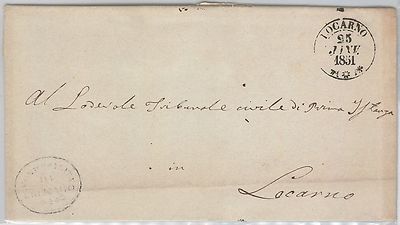 LOCARNO
25
JANV.
1851
Al Lodevole Tribunale civile di Prima Istanza
in
Locarno